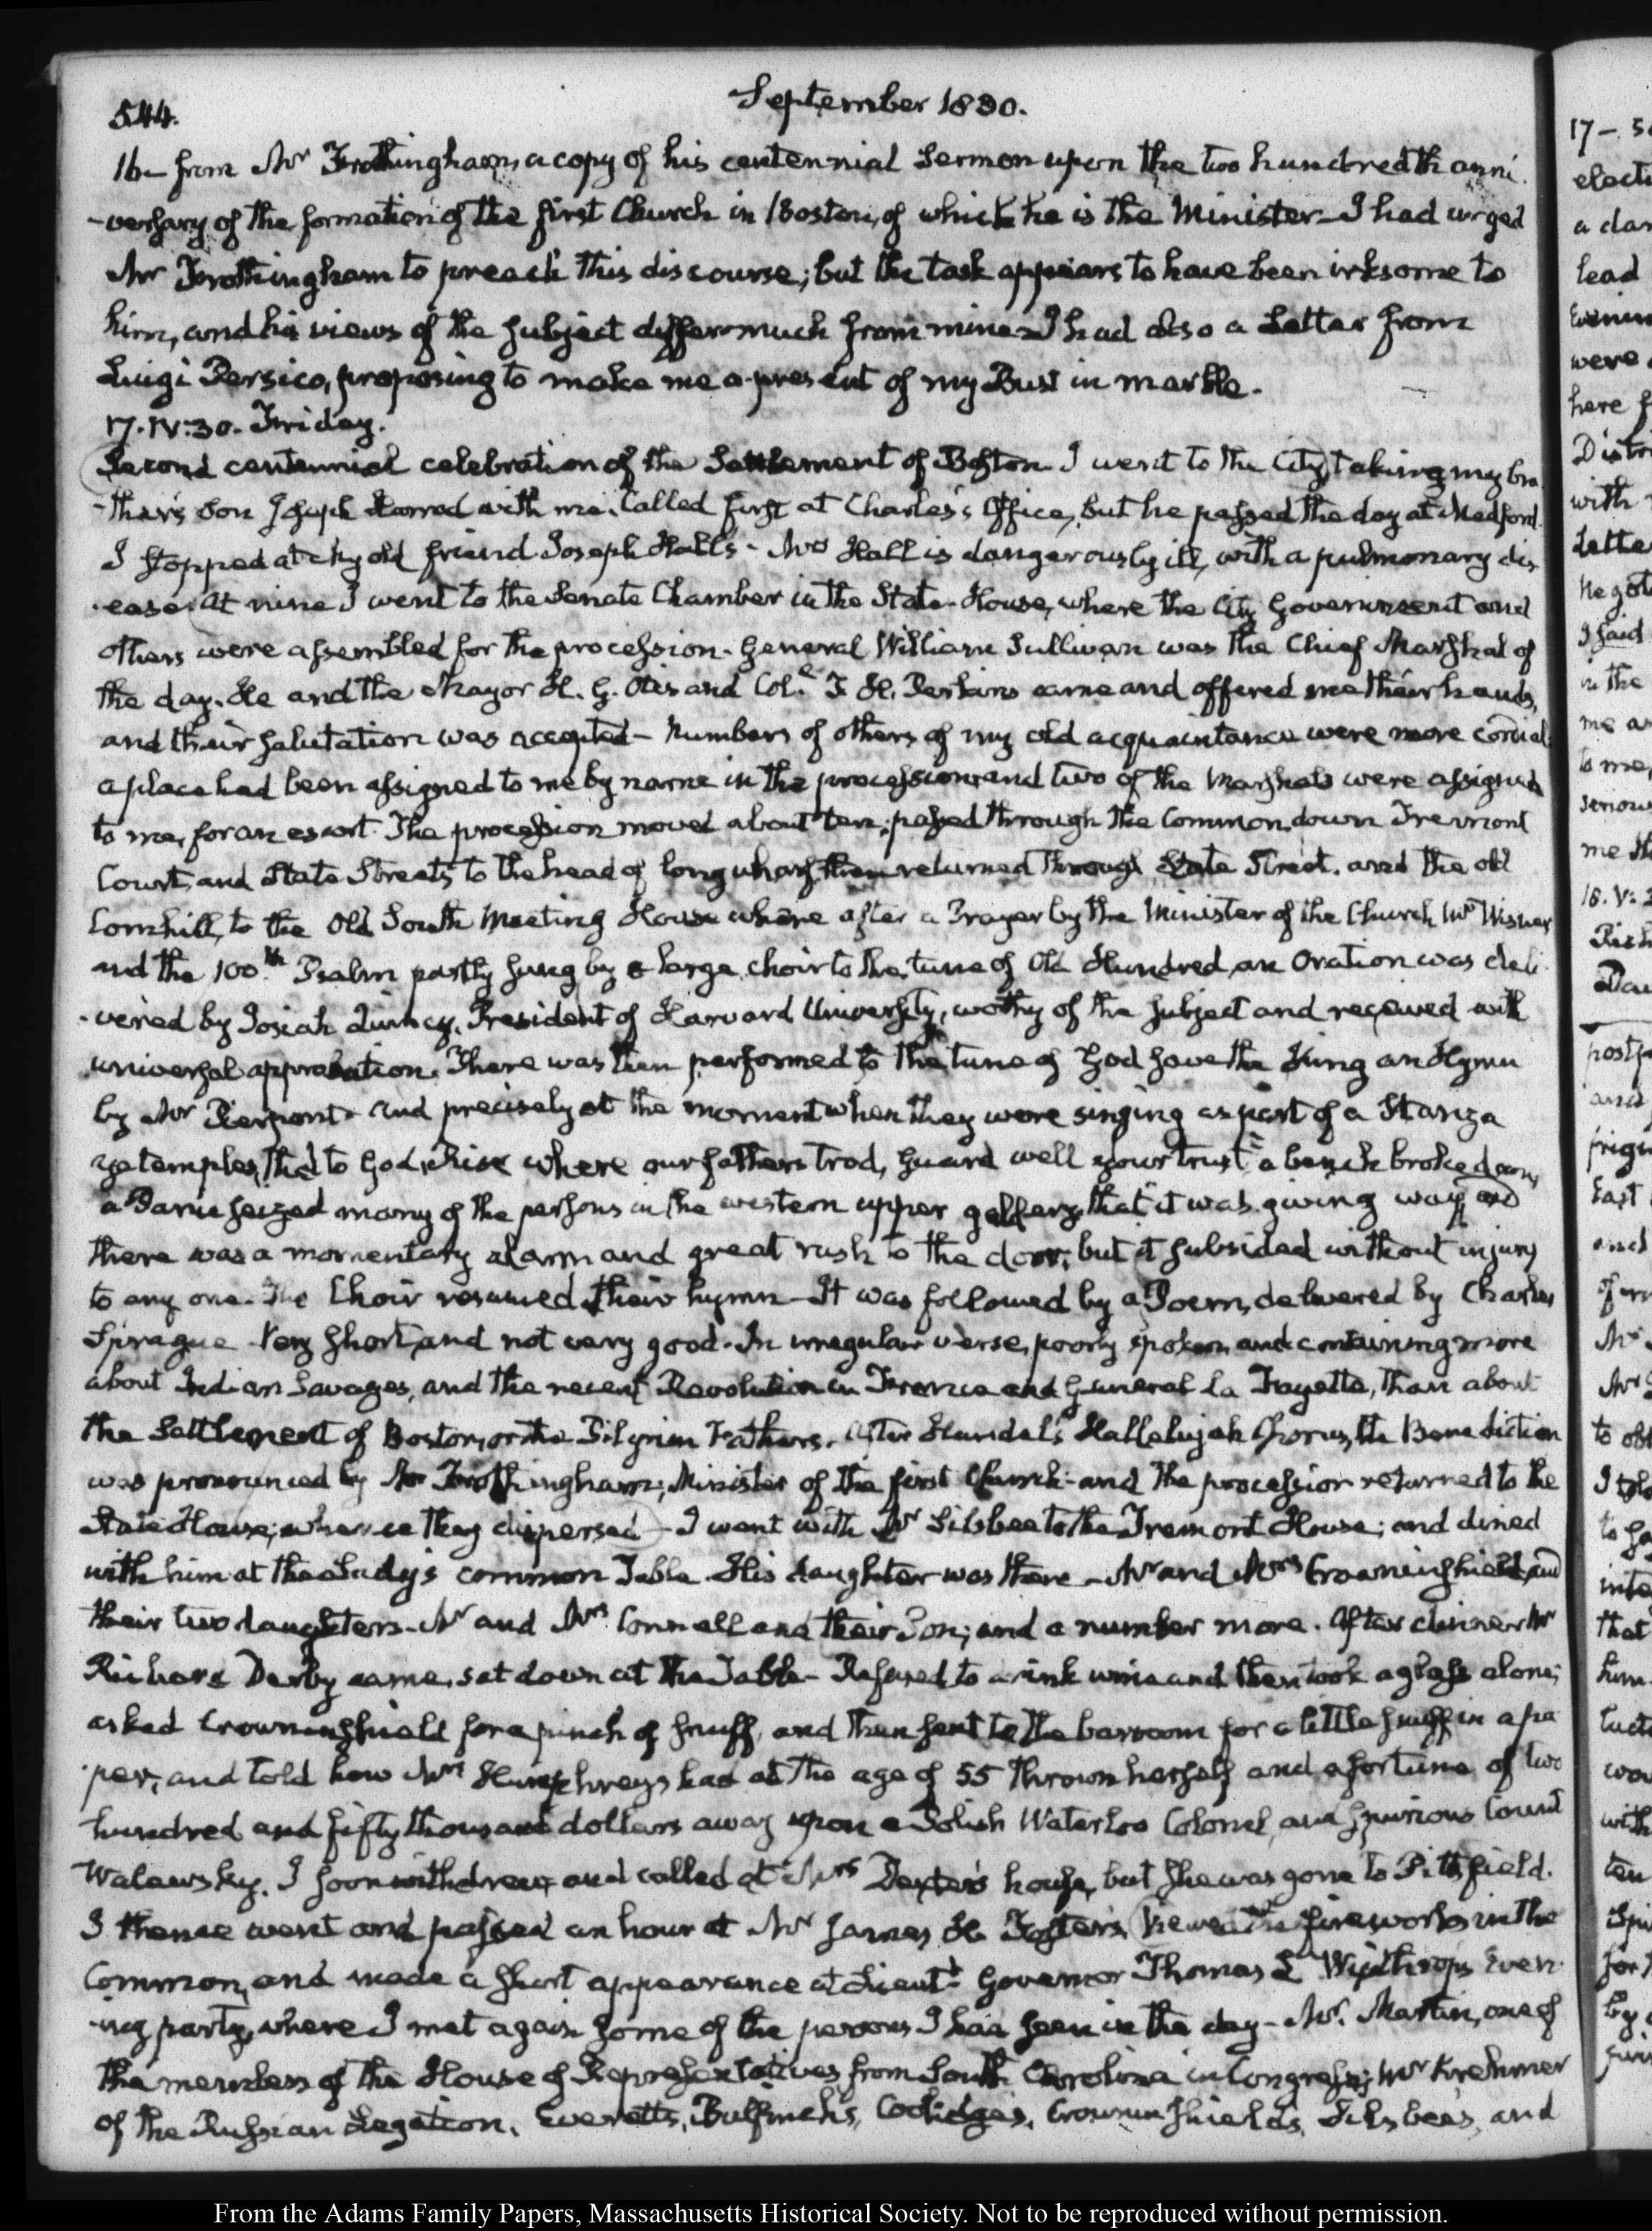 544.
September 1830.
16– from Mr Frothingham, a copy of his centennial Sermon upon the two hundredth anni
-versary of the formation of the first Church in Boston, of which he is the Minister– I had urged
Mr Frothingham to preach this discourse; but the task appears to have been irksome to
him, and his views of the subject differ much from mine– I had also a Letter from
Luigi Persico, proposing to make me a present of my Bust in marble.
17. IV:30. Friday.
Second centennial celebration of the Settlement of Boston. I went to the City, taking my bro
-ther's Son Joseph Harrod with me. Called first at Charles's Office, but he passed the day at Medford.
I stopped at my old friend Joseph Hall's– Mrs Hall is dangerously ill, with a pulmonary dis
-ease. At nine I went to the Senate Chamber in the State-House, where the City Government and
others were assembled for the procession. General William Sullivan was the Chief Marshal of
the day. He and the Mayor H. G. Otis and Col. T. H. Perkins came and offered me their hands,
and their salutation was accepted– Numbers of others of my old acquaintance were more cordial
a place had been assigned to me by name in the procession and two of the Marshals were assigned
to me, for an escort. The procession moved about ten; passed through the Common, down Tremont
Court, and State Streets to the head of long wharf, then returned through State Street, and the old
Cornhill, to the Old South Meeting House where after a Prayer by the Minister of the Church Mr Wisner
and the 100.th Psalm partly sung by a large choir to the tune of Old Hundred, an Oration was deli
-vered by Josiah Quincy, President of Harvard University, worthy of the subject and received with
universal approbation. There was then performed to the tune of God save the King an Hymn
by Mr Pierpont– and precisely at the moment when they were singing as part of a Stanza
"ye temples, that to God Rise where our fathers trod, Guard well your trust" a bench broke down,
a Panic seized many of the persons in the western upper gallery, that it was giving way, and
there was a momentary alarm and great rush to the door, but it subsided without injury
to any one. The Choir resumed their hymn– It was followed by a Poem, delivered by Charles
Sprague– Very short, and not very good. In irregular verse, poorly spoken and containing more
about Indian Savages, and the recent Revolution in France and General la Fayette, than about
the Settlement of Boston, or the Pilgrim Fathers. After Handel's Hallelujah Chorus, the Benediction
was pronounced by Mr Frothingham; Minister of the first Church– and the procession returned to the
State House; whence they dispersed– I went with Mr Silsbee to the Tremont House; and dined
with him at the Lady's common Table. His daughter was there– Mr and Mrs Crowninshield, and
their two daughters– Mr and Mrs Connell and their Son; and a number more. After dinner Mr
Richard Derby came, sat down at the Table– Refused to drink wine and then took a glass alone;
asked Crowninshield for a pinch of snuff, and then sent to the barroom for a little snuff in a pa
-per; and told how Mrs Humphreys had at the age of 55 thrown herself and a fortune of two
hundred and fifty thousand dollars away upon a Polish Waterloo Colonel, and spurious Count
Walewsky. I soon withdrew, and called at Mrs Dexter's house, but she was gone to Pittsfield.
I thence went and passed an hour at Mr James H. Foster's, viewed the fireworks in the
Common, and made a short appearance at Lieut.t Governor Thomas L. Winthrop's Even
-ing party, where I met again some of the persons I had seen in the day– Mr. Martin, one of
the members of the House of Representatives from South Carolina in Congress; Mr Krehmer
of the Russian Legation, Everetts, Bulfinch's, Coolidges, Crowninshields, Silsbee's, and
17–
lead
were
here
with
I said
in the
to me,
me
18. V:
and
East
and
that
him
with
ten
for
by
From the Adams Family Papers, Massachusetts Historical Society. Not to be reproduced without permission.